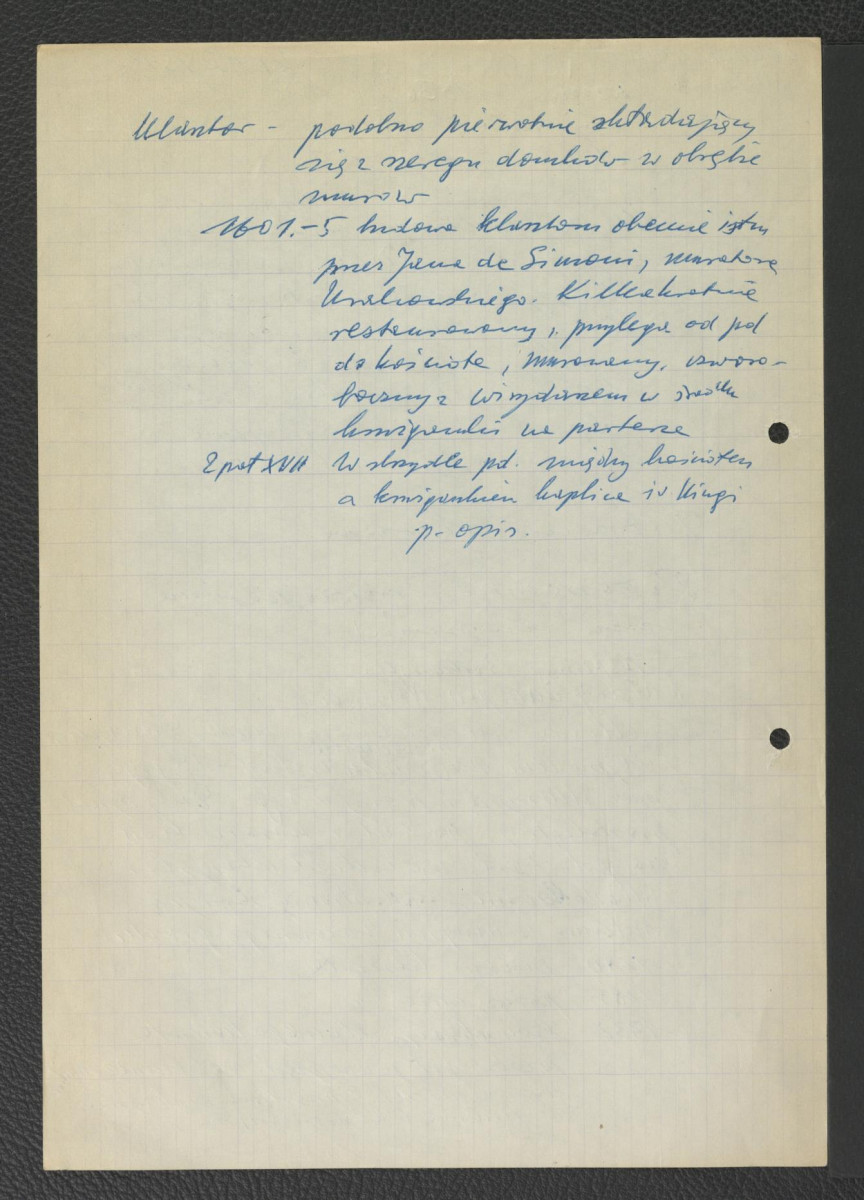 Klasztor – podobno pierwotnie składający
się z szeregu domków w obrębie
murów
1601.–5 budowa klasztoru obecnie istn
przez Jana de Simoni, muratora
Krakowskiego. Kilkakrotnie
restaurowany, przylega od pd
do kościoła, murowany, czworo-
boczny z wirydarzem w środku
krużganki na parterze
2 poł XVII W skrzydle pd. między kościołem
a krużgankiem kaplica św Kingi
p. opis.